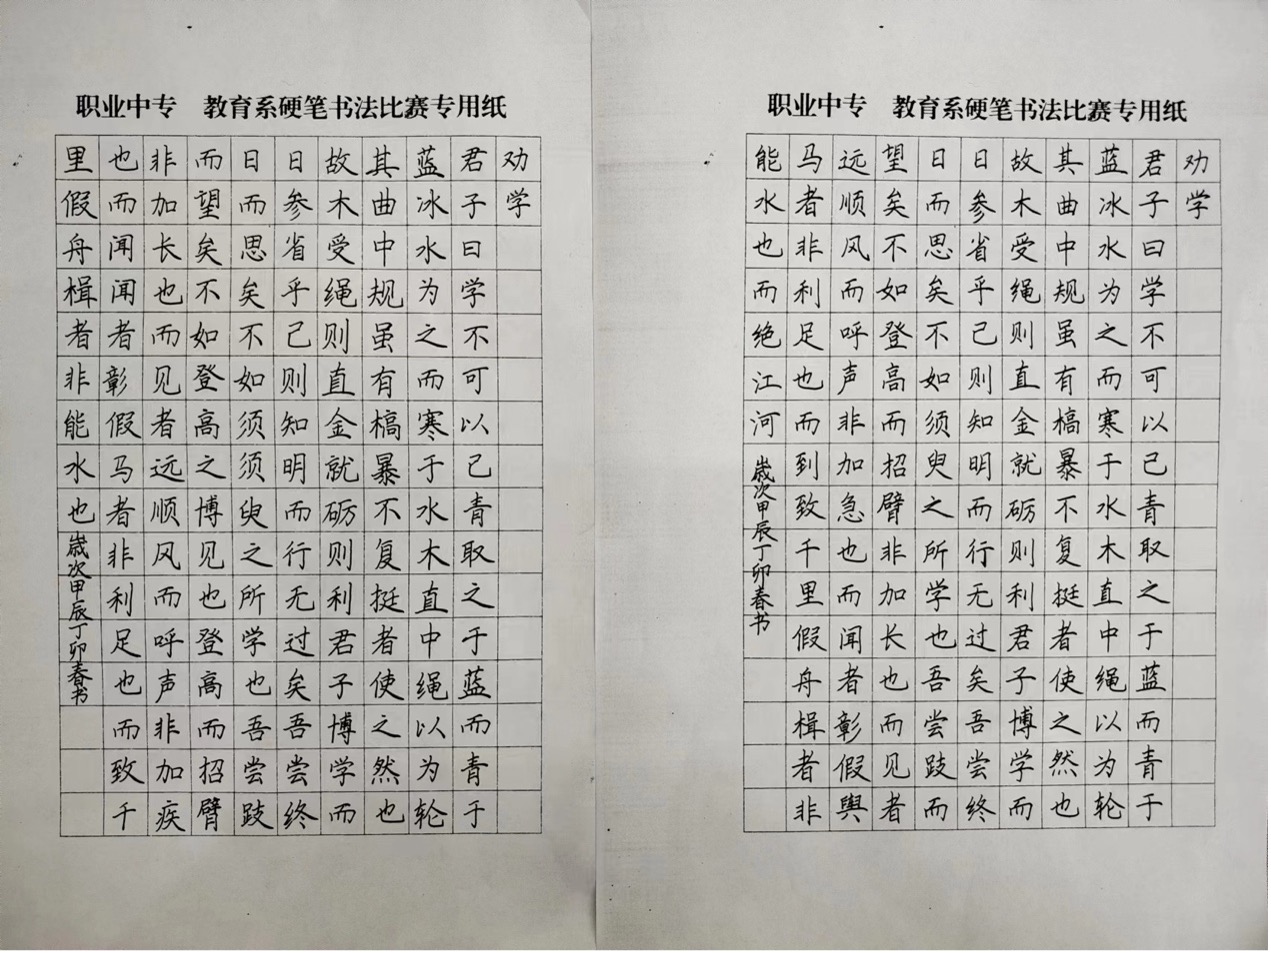 职业中专 教育系硬笔书法比赛专用纸
劝学
君子曰学不可以己青取之于蓝而青于
蓝冰水为之而寒于水木直中绳以为轮
其曲中规虽有槁暴不复挺者使之然也
故木受绳则直金就砺则利君子博学而
日参省乎己则知明而行无过矣吾尝终
日而思矣不如须须臾之所学也吾尝跂
而望矣不如登高之博见也登高而招臂
非加长也而见者远顺风而呼声非加疾
也而闻闻者彰假马者非利足也而致千
里假舟楫者非能水也
歲次甲辰丁卯春书
职业中专 教育系硬笔书法比赛专用纸
劝学
君子曰学不可以己青取之于蓝而青于
蓝冰水为之而寒于水木直中绳以为轮
其曲中规虽有槁暴不复挺者使之然也
故木受绳则直金就砺则利君子博学而
日参省乎己则知明而行无过矣吾尝终
日而思矣不如须臾之所学也吾尝跂而
望矣不如登高而招臂非加长也而见者
远顺风而呼声非加急也而闻者彰假舆
马者非利足也而到致千里假舟楫者非
能水也而绝江河
歲次甲辰丁卯春书